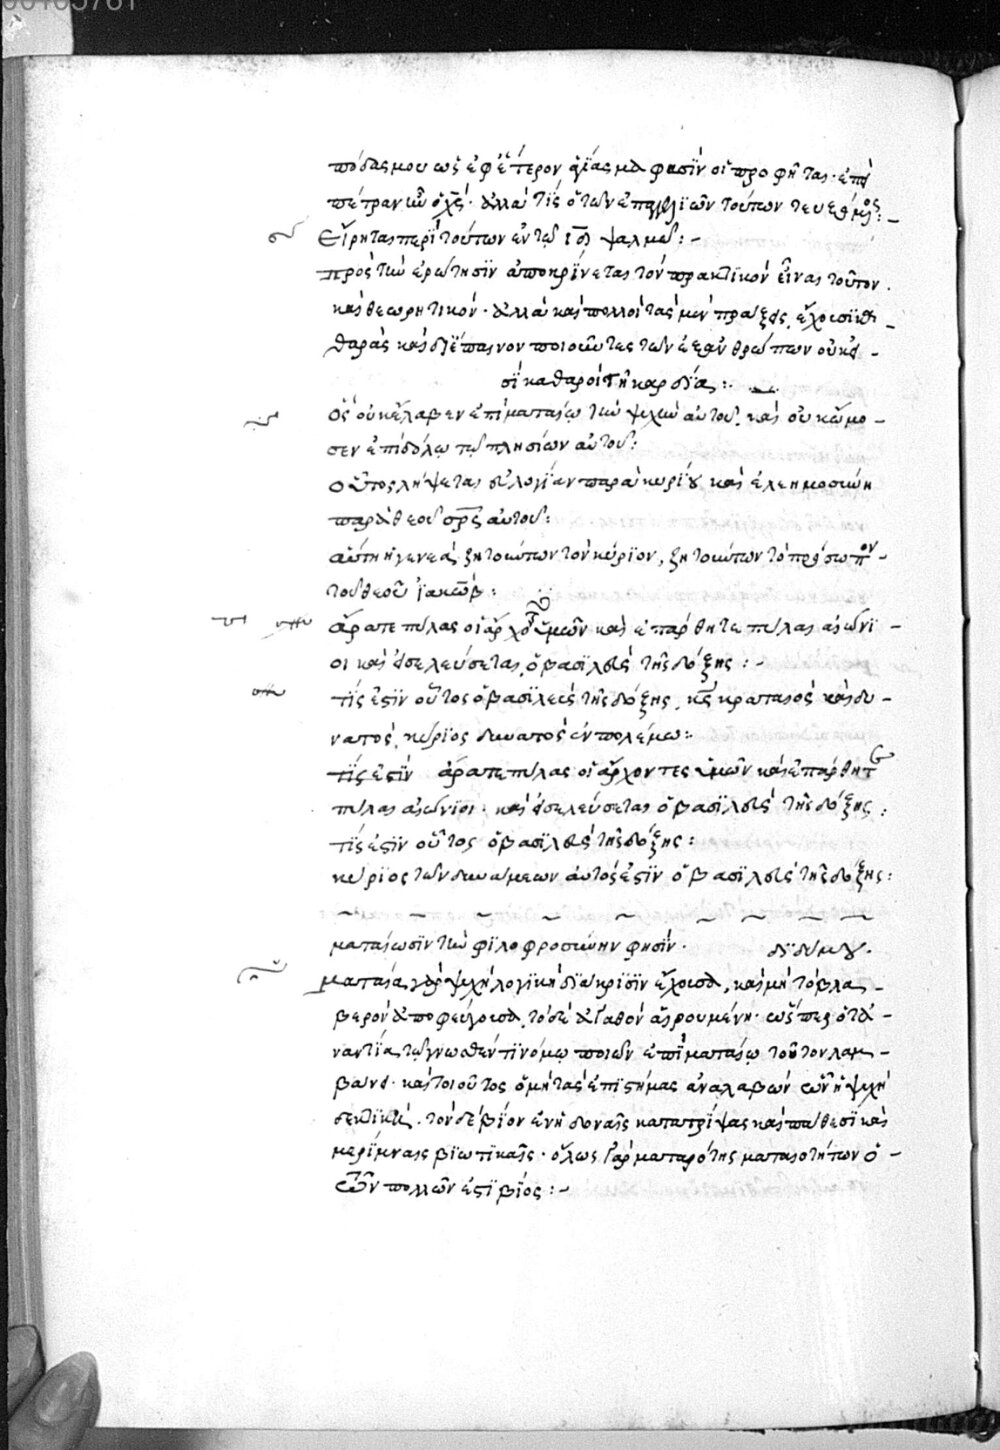 πόδας μου ὡς ἐφ ἑτέρον ἁγίας μα φασὶν οἱ προφῆται· ἐπὶ
πέτραν ἀλλὰ τίς ὁ τῶν ἐπαγγελιῶν τούτων τευξόμενος:-
Εἴρηται περὶ τούτων ἐν τῷ ιδ ψαλμῷ:-
πρὸς τὴν ἐρώτησιν ἀποκρίνεται τὸν πρακτικὸν εἶναι τοῦτον
καὶ θεωρητικόν· ἀλλὰ καὶ πολλοὶ τὰς μὲν πράξεις ἔχουσι κα-
θαρὰς καὶ δι' ἔπαινον ποιοῦντες τὸν ἐξ ἀνθρώπων οὐκ εἰ-
σὶ καθαροὶ τῇ καρδίᾳ:-
ὃς οὐκ ἔλαβεν ἐπὶ ματαίῳ τὴν ψυχὴν αὐτοῦ, καὶ οὐκ ὤμο-
σεν ἐπὶ δόλῳ τῷ πλησίον αὐτοῦ:
οὗτος λήψεται εὐλογίαν παρὰ κυρίου καὶ ἐλεημοσύνην
παρὰ θεοῦ σρς αὐτοῦ:
αὕτη ἡ γενεὰ ζητούντων τὸν κύριον, ζητούντων τὸ πρόσωπον
τοῦ θεοῦ ἰακώβ:
ἄρατε πύλας οἱ ἄρχοντες ὑμῶν καὶ ἐπάρθητε πύλαι αἰώνι-
οι καὶ εἰσελεύσεται ὁ βασιλεὺς τῆς δόξης:-
τίς ἐστιν οὗτος ὁ βασιλεὺς τῆς δόξης, κς κραταιὸς καὶ δυ-
νατός, κύριος δυνατὸς ἐν πολέμῳ:
τίς ἐστιν ἄρατε πύλας οἱ ἄρχοντες ὑμῶν καὶ ἐπάρθητε
πύλαι αἰώνιοι· καὶ εἰσελεύσεται ὁ βασιλεὺς τῆς δόξης:
τίς ἐστιν οὗτος ὁ βασιλεὺς τῆς δόξης:
κύριος τῶν δυνάμεων αὐτός ἐστιν ὁ βασιλεὺς τῆς δόξης:
ματαίωσιν τὴν φιλοφροσύνην φησίν· διδύμου.
ματαία γὰρ ψυχὴ λογικὴ διάκρισιν ἔχουσα, καὶ μὴ τὸ βλα-
βερὸν ἀποφεύγουσα, τὸ δὲ ἀγαθὸν αἱρουμένη· ὥσπερ ὁ τἀ-
ναντία τῷ γνωσθέντι νόμῳ ποιῶν ἐπὶ ματαίῳ τοῦτον λαμ-
βάνει· καὶ τοιοῦτος ὁ μὴ τὰς ἐπιστήμας ἀναλαβὼν ὧν ἡ ψυχὴ
δεκτική· τὸν δὲ βίον ἐν ἡδοναῖς κατατρίψας καὶ πάθεσι καὶ
μερίμναις βιωτικαῖς· ὅλως γὰρ ματαιότης ματαιοτήτων ὁ
τῶν πολλῶν ἐστι βίος:-